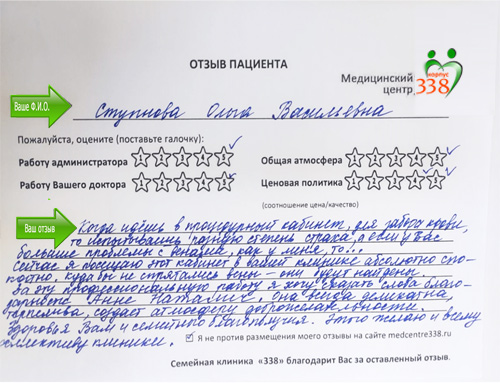 ОТЗЫВ ПАЦИЕНТА
Медицинский
центр
корпус
338
Ваше Ф.И.О.
Ступнова Ольга Васильевна
Пожалуйста, оцените (поставьте галочку):
Работу администратора 1 2 3 4 5
Общая атмосфера 1 2 3 4 5
Работу Вашего доктора 1 2 3 4 5
Ценовая политика 1 2 3 4 5
(соотношение цена/качество)
Ваш отзыв
Когда идёшь в процедурный кабинет, для забора крови,
то испытываешь разную степень страха, а если у Вас
большие проблемы с венами, как у меня, то...
Сейчас я посещаю этот кабинет в вашей клинике абсолютно спо-
койно. Куда бы не спрятались вены – они будут найдены.
За эту профессиональную работу я хочу сказать слова благо-
дарности Анне Наталич. Она всегда деликатна,
терпелива, создаёт атмосферу доброжелательности.
Здоровья Вам и семейного благополучия. Этого желаю и всему
коллективу клиники.
Я не против размещения моего отзывы на сайте medcentre338.ru
Семейная клиника «338» благодарит Вас за оставленный отзыв.